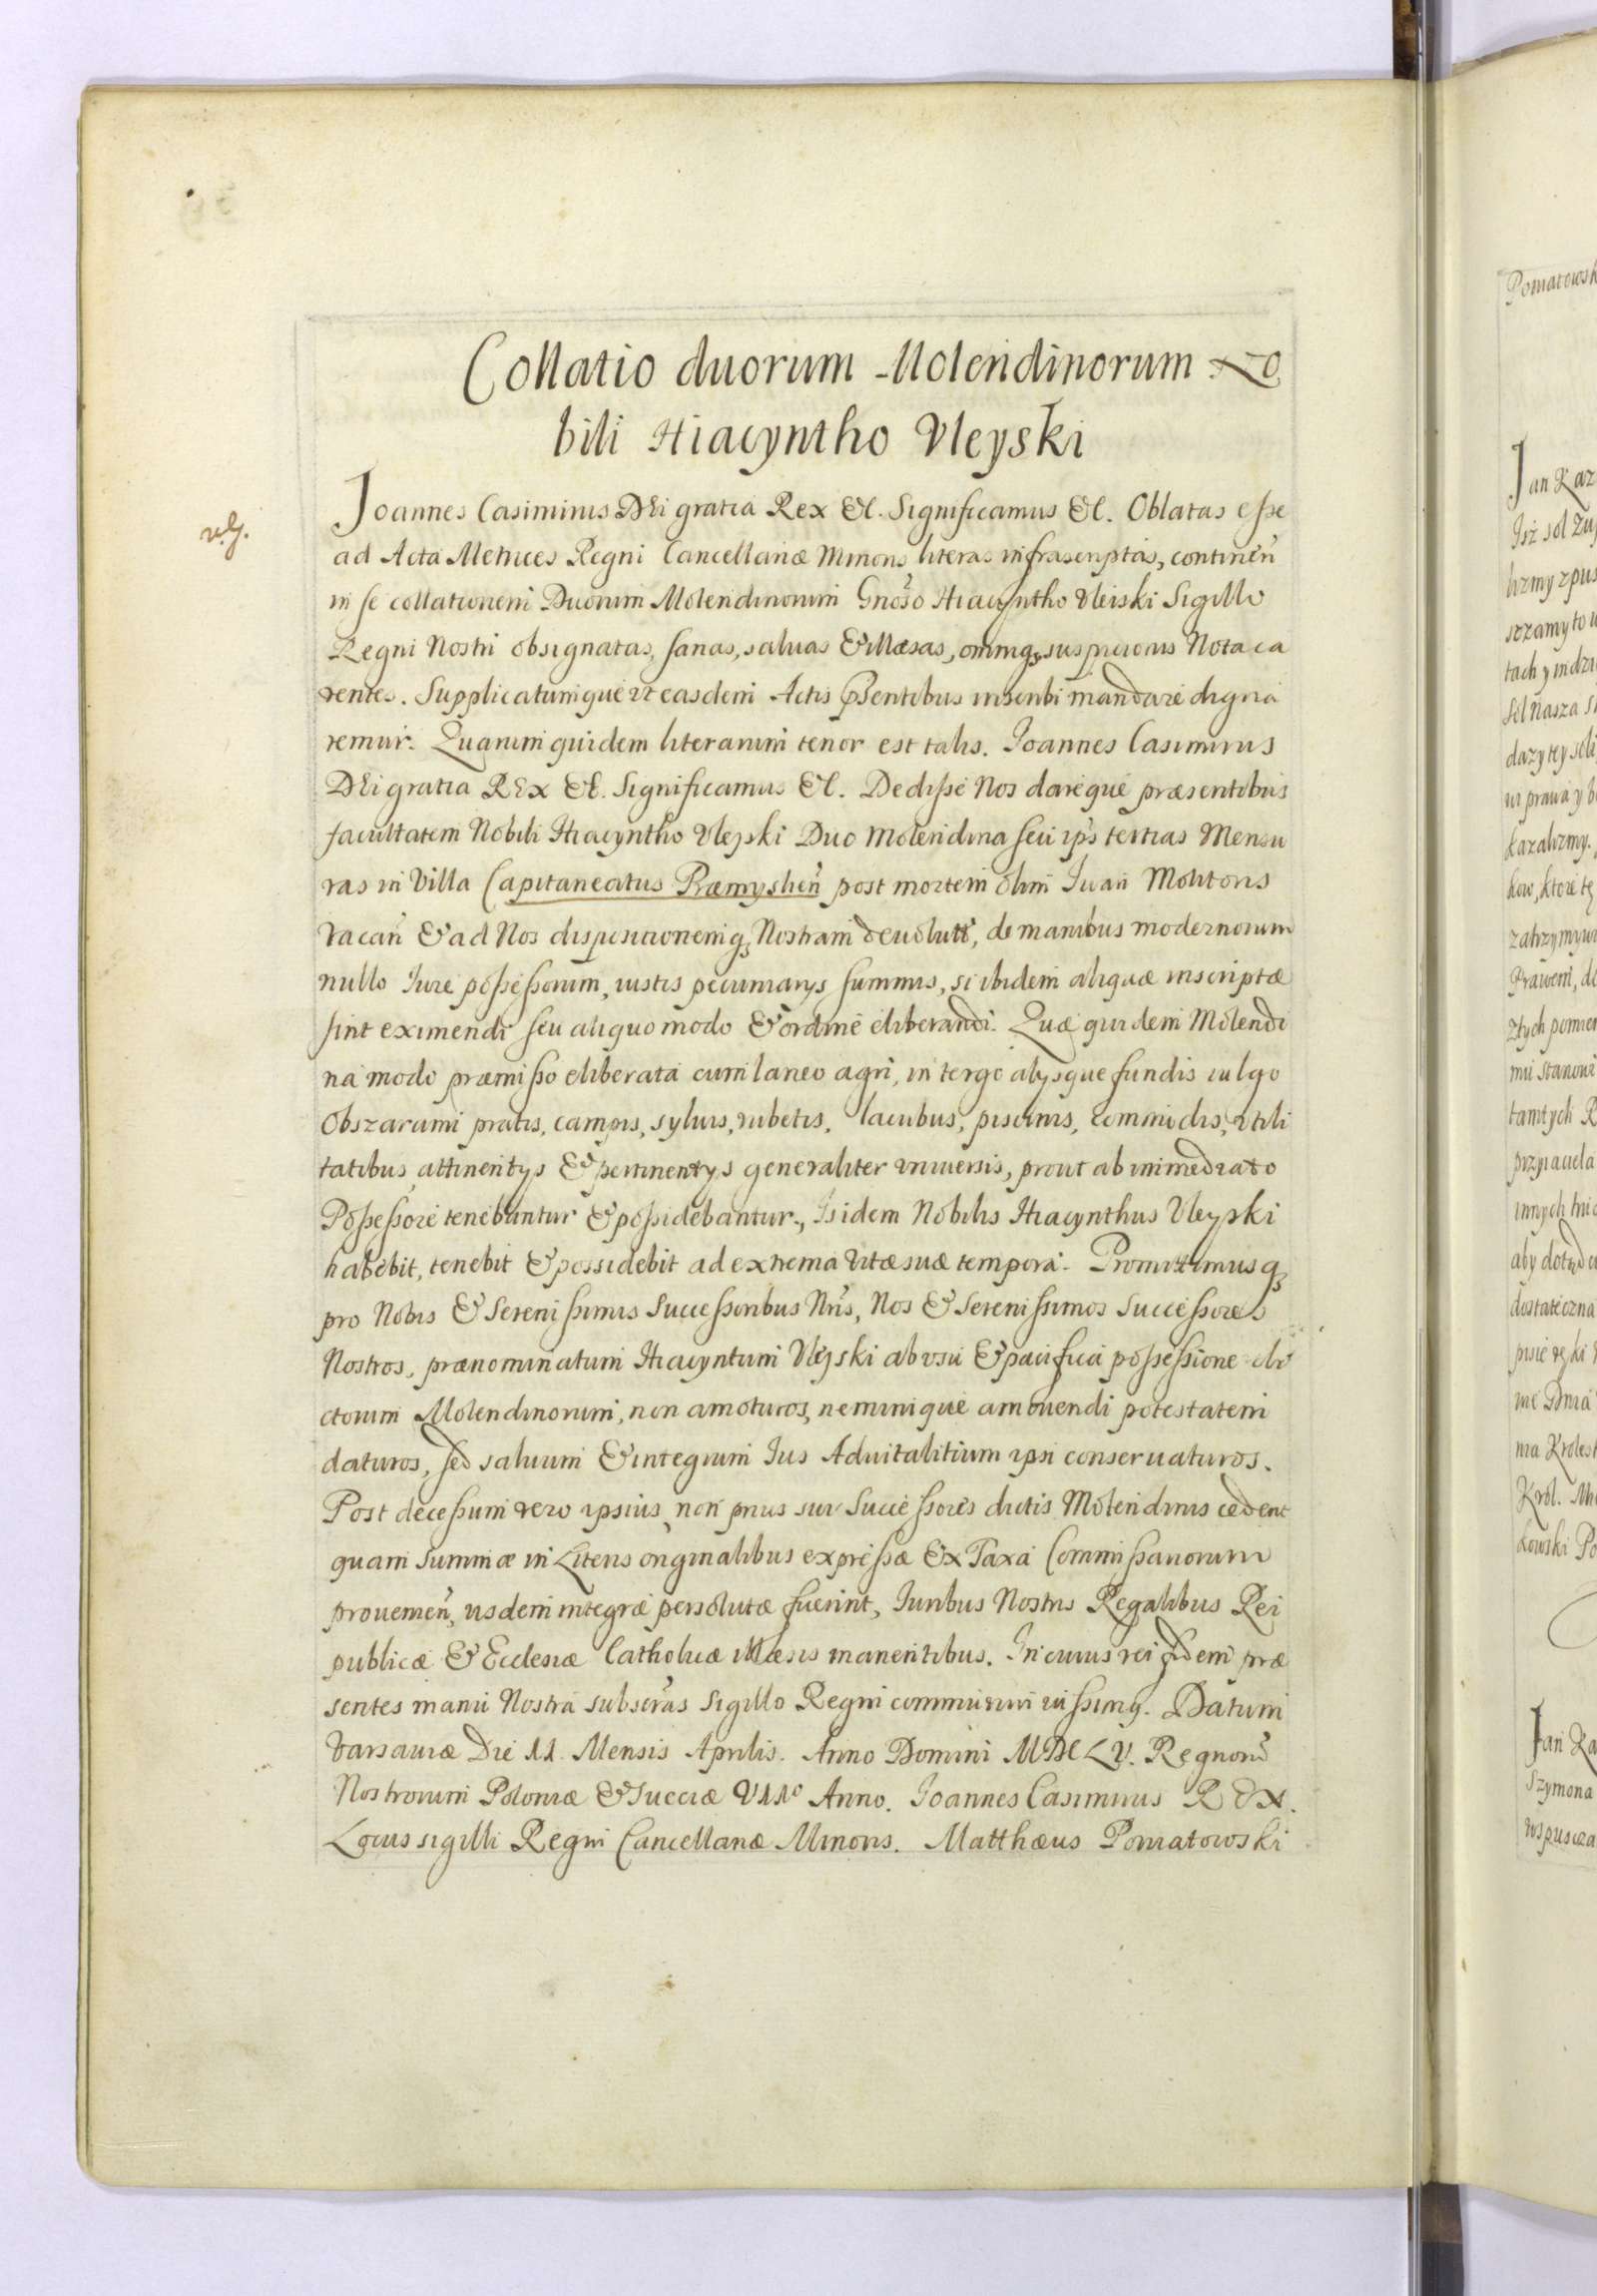 Collatio duorum Molendinorum No
bili Hiacyntho Uleyski
Joannes Casimirus DEi gratia Rex &c. Significamus &c. Oblatas esse
ad Acta Metrices Regni Cancellariæ Minoris literas infrascriptas, continen̄
in se collationem Duorum Molendinorum Gnoso Hiacyntho Uleiski Sigillo
Regni Nostri obsignatas, sanas, saluas & illæsas, omniq; suspicionis Nota ca
rentes. Supplicatumque ut easdem Actis p̄sentibus inscribi mandare digna
remur. Quarum quidem literarum tenor est talis. Joannes Casimirus
DEi gratia REx &c. Significamus &c. Dedisse Nos dareque præsentibus
facultatem Nobili Hiacyntho Uleyski Duo Molendina seu ips tertias Mensu
ras in Villa Capitaneatus Præmyslien̄ post mortem olim Iwan Molitoris
vacan̄ & ad Nos dispositionemq; Nostram deuolutt, de manibus modernorum
nullo Iure possessorum, iustis pecuniarys summis, si ibidem aliquæ inscriptæ
sint eximendi seu aliquo modo & ordine eliberandi. Quæ quidem Molendi
na modo præmisso eliberata cum laneo agri, in tergo alysque fundis vulgo
Obszarami pratis, campis, syluis, rubetis, lacubus, piscinis, commodis, vtili
tatibus attinentys & pertinentys generaliter vniuersis, prout ab immediato
Possessore tenebantur & possidebantur, Isidem Nobilis Hiacynthus Uleyski
habebit, tenebit & possidebit ad extrema vitæ suæ tempora. Promittimusq;
pro Nobis & Serenissimis Successoribus Nr̄is, Nos & Serenissimos Successores
Nostros, prænominatum Hiacyntum Uleyski ab vsu & pacifica possessione di
ctorum Molendinorum, non amoturos, neminique amouendi potestatem
daturos, sed saluum & integrum Ius Aduitalitium ipsi conseruaturos.
Post decessum vero ipsius non prius sui Successores dictis Molendinis cedent
quam summæ in Literis originalibus expressæ & x Taxa Commissariorum
prouenien̄, iisdem integræ persolutæ fuerint, Iuribus Nostris Regalibus Rei
publicæ & Ecclesiæ Catholicæ illæsis manentibus. In cuius rei fidem præ
sentes manu Nostra subscr̄as Sigillo Regni communiri iussimq. Datum
Varsauiæ Die 11. Mensis Aprilis. Anno Domini MDCLV. Regnorū
Nostrorum Poloniæ & Sueciæ V11º Anno. Joannes Casimirus REX.
Locus sigilli Regni Cancellariæ Minoris. Matthæus Poniatowski